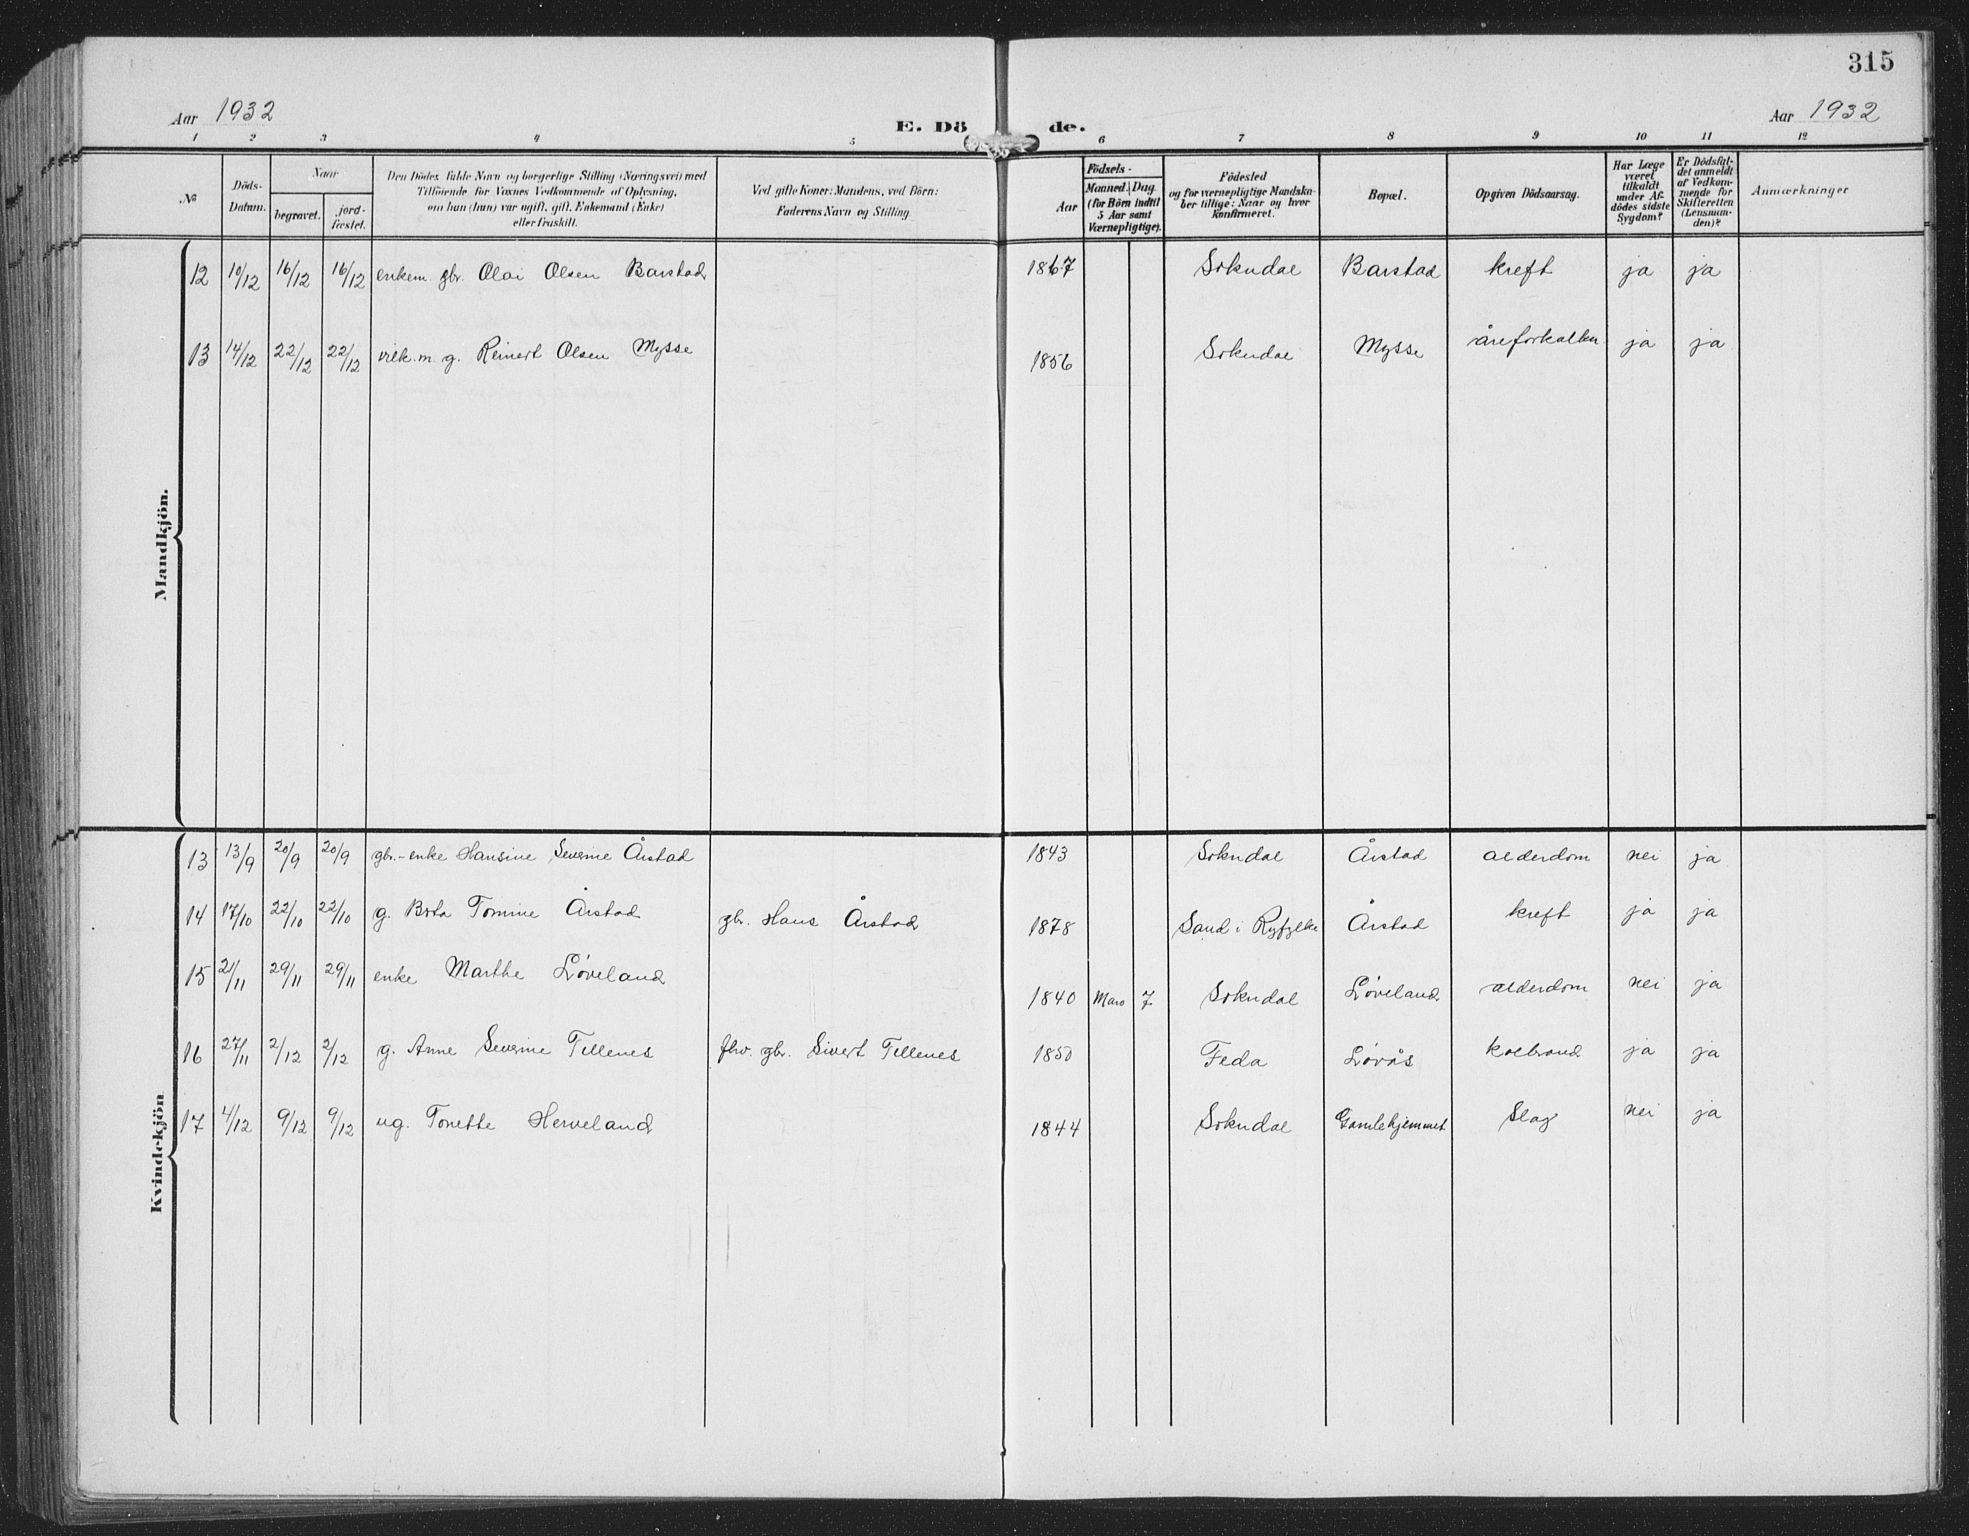 315
Aar 1932 E. Dö de. Aar 1932
1 2 3 4 5 6 7 8 9 10 11 12
№
Döds-
Datum.
Naar
begravet.
jord-
fæstet.
Den Dödes fulde Navn og borgerlige Stilling (Næringsvei) med
Tilföiende for Voxnes Vedkommende af Oplysning,
om han (hun) var ugift, gift, Enkemand (Enke)
eller fraskilt.
Ved gifte Koner: Mandens, ved Börn:
Faderens Navn og Stilling.
Aar
Födsels-
Maaned. Dag.
(for Börn indtil
5 Aar samt
Værnepligtige).
Födested
og for værnepligtige Mandska-
ber tillige: Naar og hvor
konfirmeret.
Bopæl.
Opgiven Dödsaarsag.
Har Læge
været
tilkaldt
under Af-
dödes sidste
Sygdom?
Er Dödsfal-
det anmeldt
af Vedkom-
mende for
Skifteretten
(Lensman-
den)?
Anmærkninger
Mandkjön.
12 10/12 16/12 16/12 enkem. gbr. Olai Olsen Barstad 1867 Sokndal Barstad kreft ja ja
13 14/12 22/12 22/12 g. Reinert Olsen Mysse 1856 Sokndal Mysse åreforkalkn ja ja
Kvindekjön
13 13/9 20/9 20/9 gbr.-enke Hansine Severine Årstad 1843 Sokndal Årstad alderdom nei ja
14 17/10 22/10 22/10 g. Berta Tomine Årstad gbr. Hans Årstad 1878 Sand i Ryfylke Årstad kreft ja ja
15 21/11 29/11 29/11 enke Marthe Løveland 1840 Mars 7 Sokndal Løveland alderdom nei ja
16 27/11 2/12 2/12 g. Anne Severine Tellenes fhv. gbr. Sivert Tellenes 1850 Feda Løvås koldbrand ja ja
17 4/12 9/12 9/12 ug. Tonette Herveland 1844 Sokndal Gamlehjemmet Slag nei ja